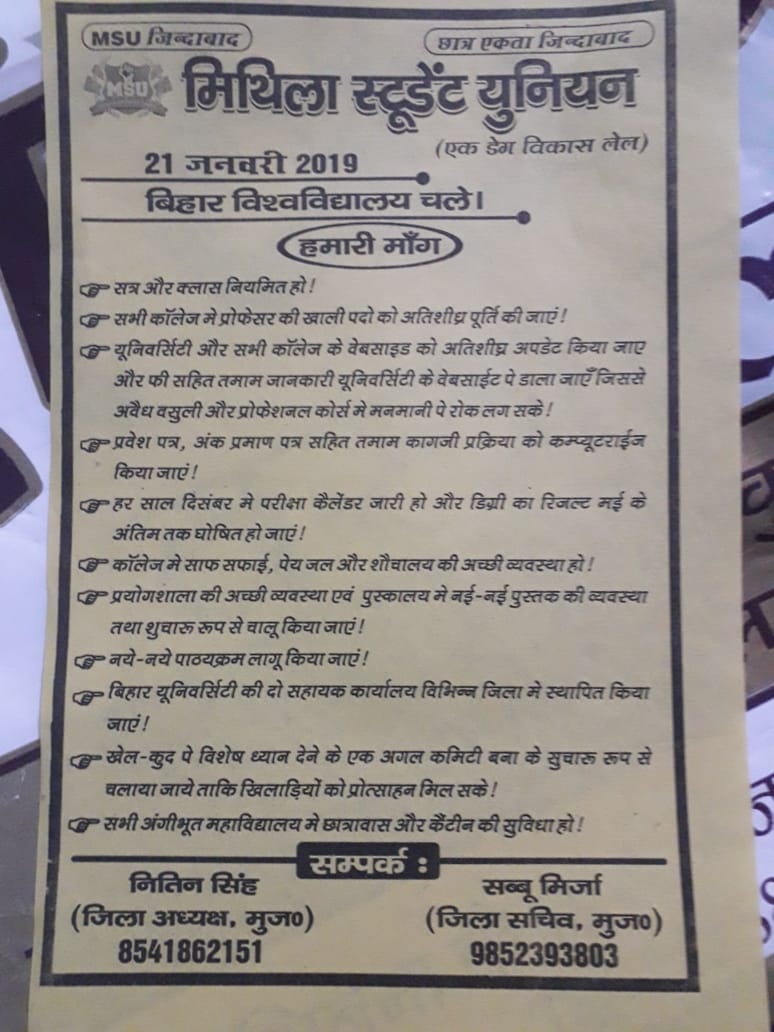 MSU जिन्दाबाद
छात्र एकता जिन्दाबाद
MSU
मिथिला स्टूडेंट युनियन
(एक डेग विकास लेल)
21 जनवरी 2019
बिहार विश्वविद्यालय चले।
हमारी माँग
सत्र और क्लास नियमित हो!
सभी कॉलेज मे प्रोफेसर की खाली पदो को अतिशीघ्र पूर्ति की जाएं!
यूनिवर्सिटी और सभी कॉलेज के वेबसाइड को अतिशीघ्र अपडेट किया जाए
और फी सहित तमाम जानकारी यूनिवर्सिटी के वेबसाईट पे डाला जाएँ जिससे
अवैध वसुली और प्रोफेशनल कोर्स मे मनमानी पे रोक लग सके!
प्रवेश पत्र, अंक प्रमाण पत्र सहित तमाम कागजी प्रक्रिया को कम्प्यूटराईज
किया जाएं!
हर साल दिसंबर मे परीक्षा कैलेंडर जारी हो और डिग्री का रिजल्ट मई के
अंतिम तक घोषित हो जाएं!
कॉलेज मे साफ सफाई, पेय जल और शौचालय की अच्छी व्यवस्था हो!
प्रयोगशाला की अच्छी व्यवस्था एवं पुस्कालय मे नई-नई पुस्तक की व्यवस्था
तथा शुचारू रूप से चालू किया जाएं!
नये-नये पाठयक्रम लागू किया जाएं!
बिहार यूनिवर्सिटी की दो सहायक कार्यालय विभिन्न जिला मे स्थापित किया
जाएं!
खेल-कुद पे विशेष ध्यान देने के एक अगल कमिटी बना के सुचारू रूप से
चलाया जाये ताकि खिलाड़ियों को प्रोत्साहन मिल सके!
सभी अंगीभूत महाविद्यालय मे छात्रावास और कैंटीन की सुविधा हो!
सम्पर्क :
नितिन सिंह
(जिला अध्यक्ष, मुज०)
8541862151
सब्बू मिर्जा
(जिला सचिव, मुज०)
9852393803